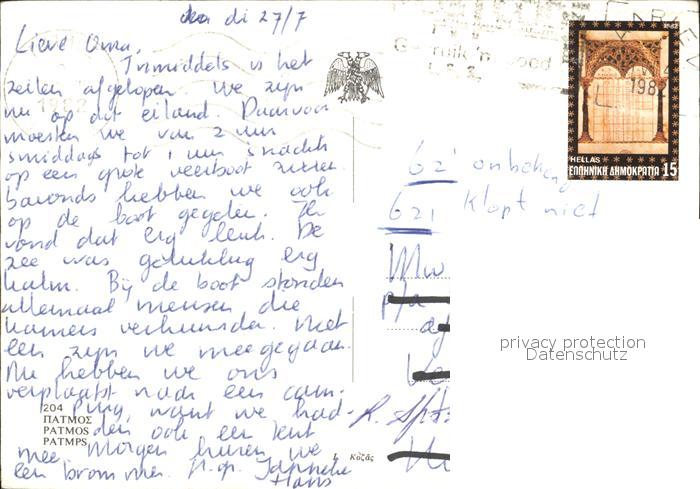 di 27/7
Lieve Oma,
Inmiddels is het
zeilen afgelopen. We zijn
nu op dit eiland. Daarvoor
moesten we van 2 uur
smiddags tot 1 uur snachts
op een grote veerboot zitten.
Savonds hebben we ook
op de boot gegeten. Ik
vond dat erg leuk. De
zee was gelukkig erg
kalm. Bij de boot stonden
allemaal mensen die
kamers verhuurden. Met
een zijn we meegegaan.
Nu hebben we ons
verplaatst naar een cam-
ping, want we had-
den ook een tent
mee. Morgen huren we
een brommer.
Hans
204
ΠΑΤΜΟΣ
PATMOS
PATMPS
Κοζάς
Gebruik 'n
1982
HELLAS
ΕΛΛΗΝΙΚΗ ΔΗΜΟΚΡΑΤΙΑ 15
62' onbekend
621 klopt niet
Mw
p/a
privacy protection
Datenschutz